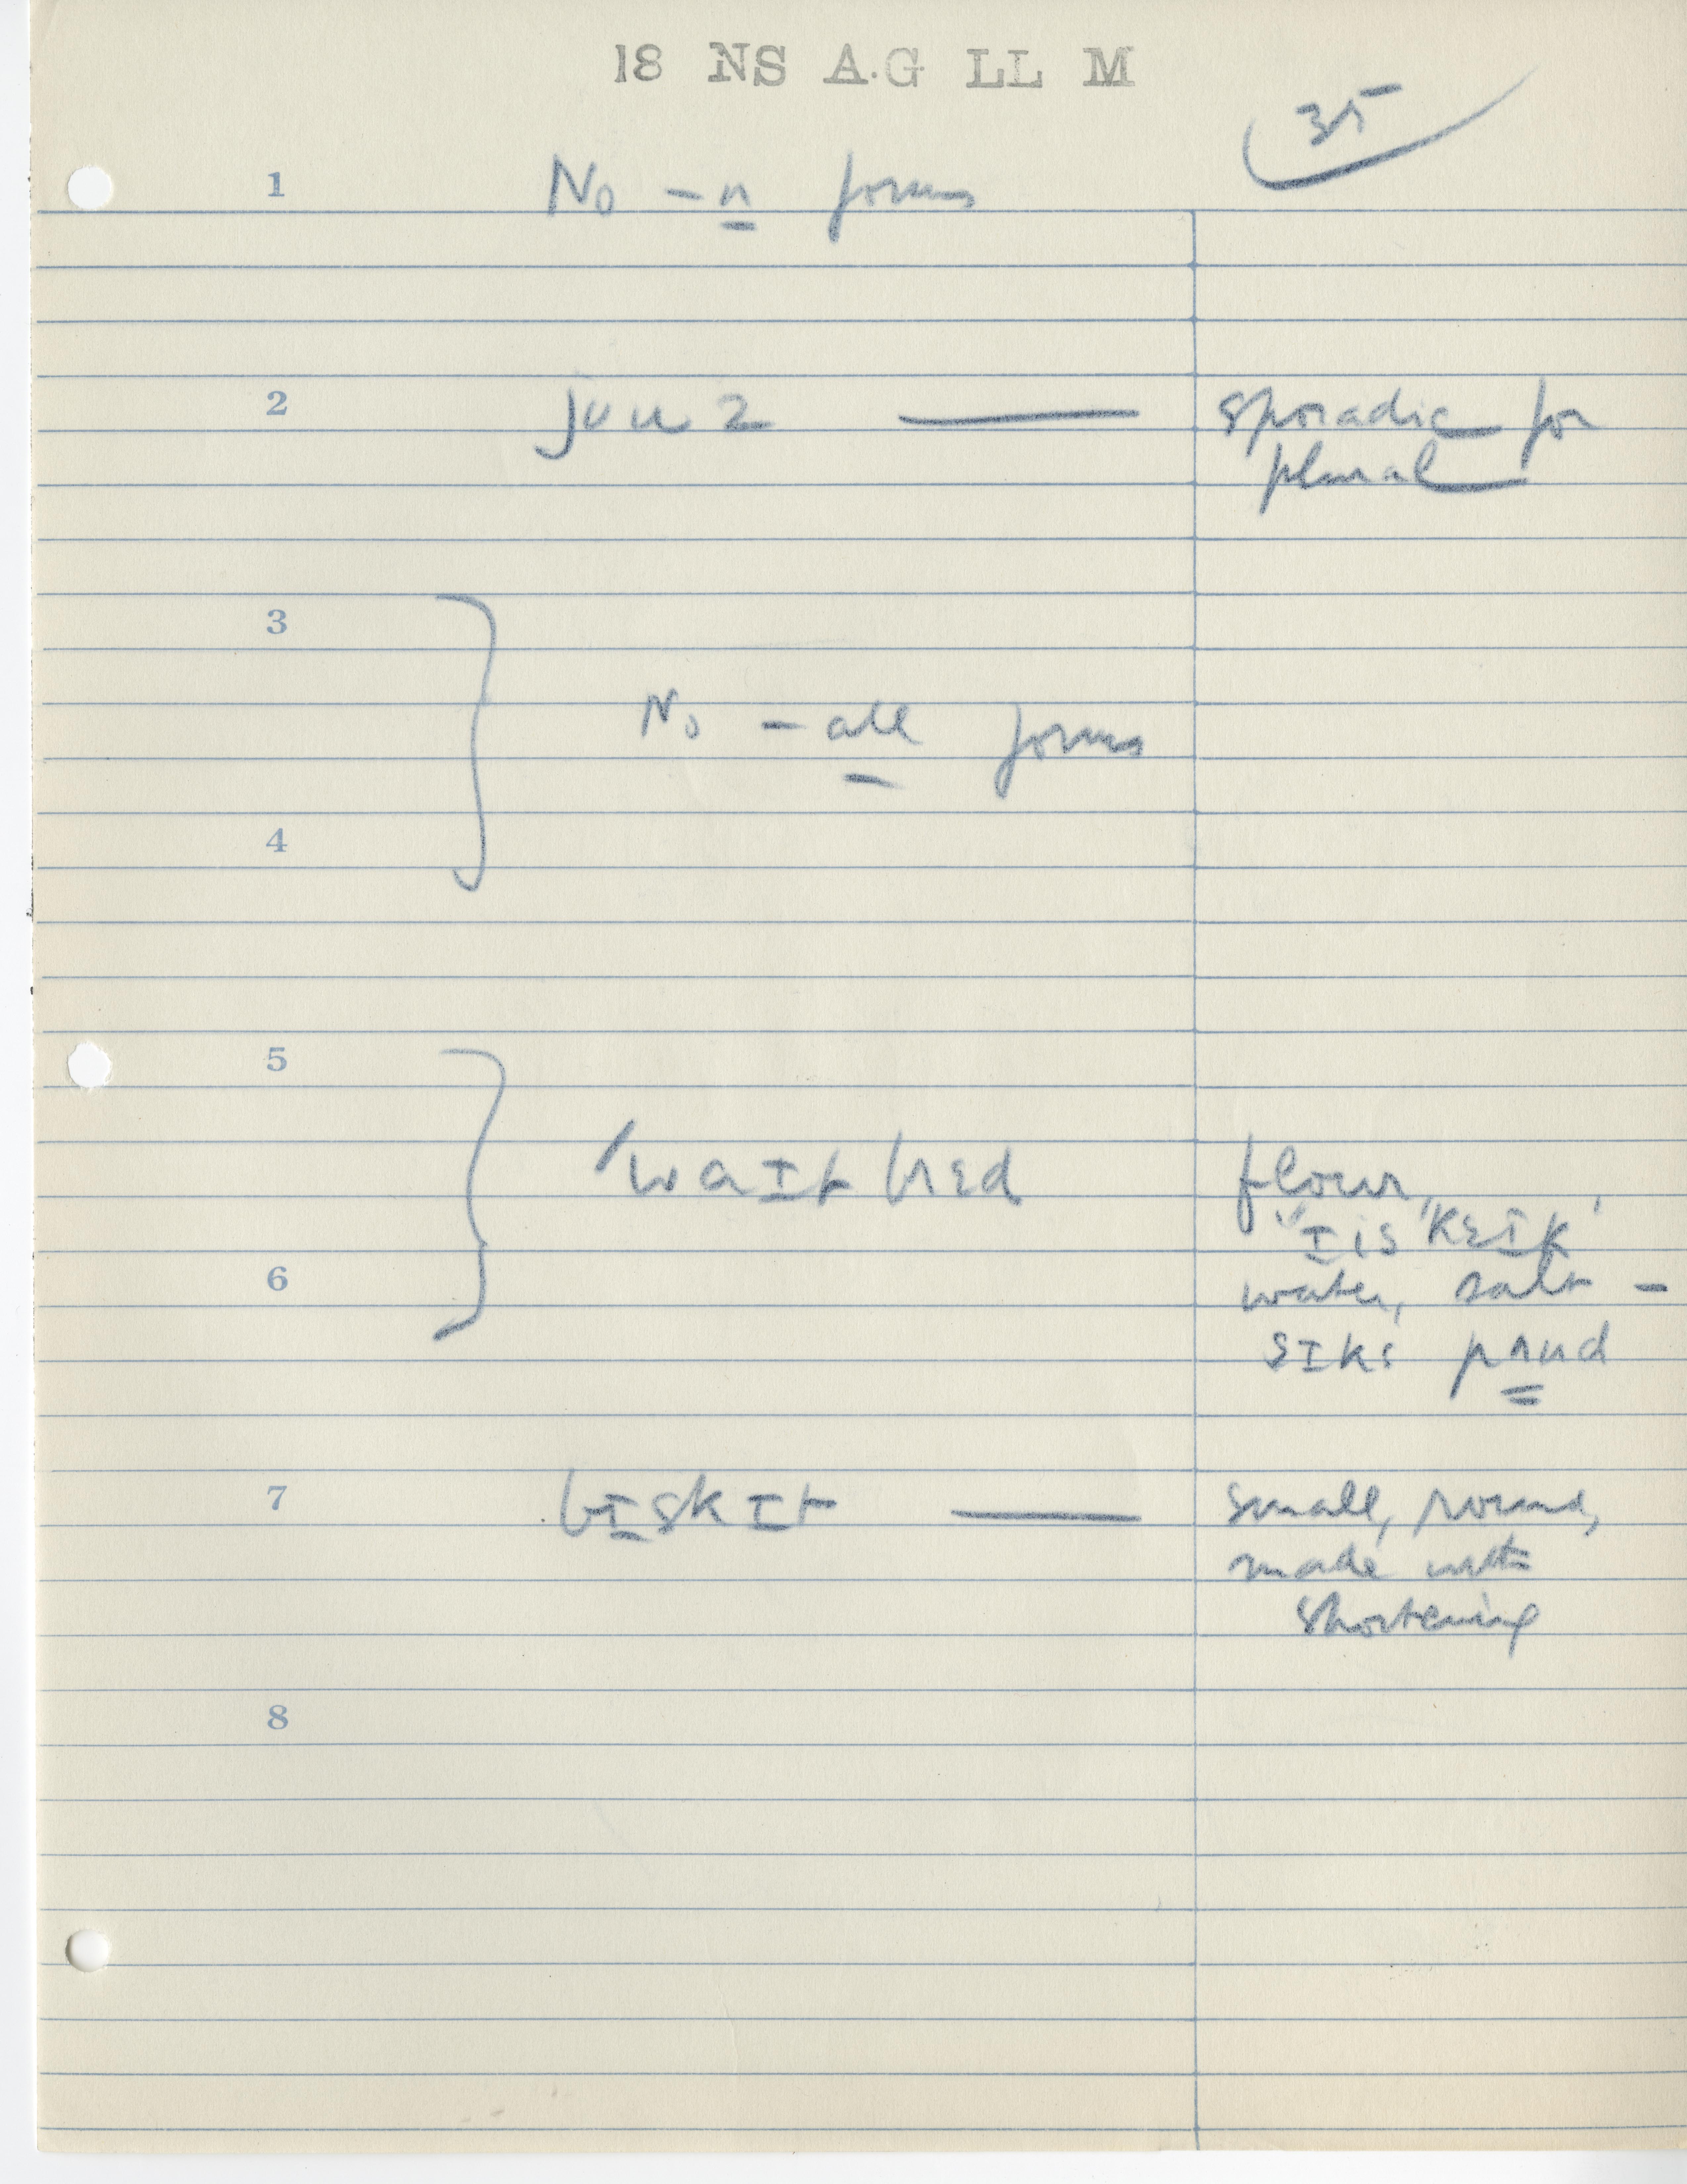 18 NS A.G LL M
35
1 No -n forms
2 juuz — sporadic for
plural
3
No -all forms
4
5
ˈwaɪt brɛd flour,
"ɪis ˈkɛɪk
6 water, salt -
sɪks paʊnd
7 bɪskɪt — small, round,
made with
shortening
8